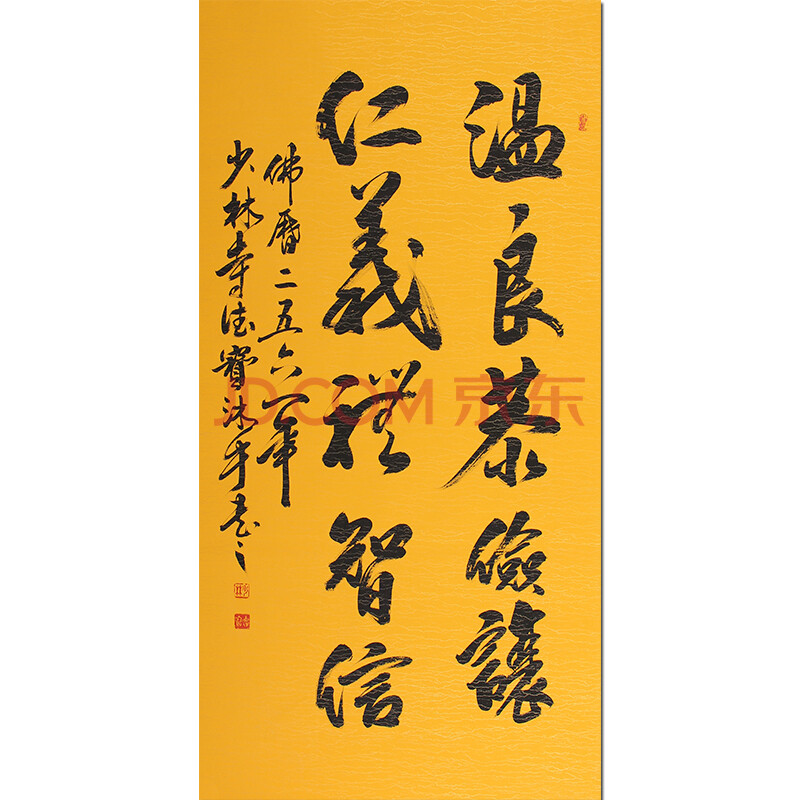 温良恭儉讓
仁義禮智信
佛曆二五六一年
少林寺德寶沐手書之
JD.COM 京东